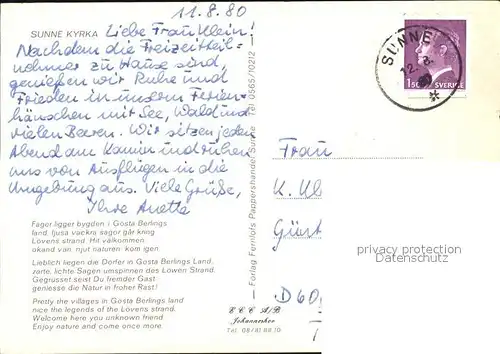 11.8.80
SUNNE KYRKA
Liebe Frau Klein!
Nachdem die Freizeitteil-
nehmer zu Hause sind,
genießen wir Ruhe und
Frieden in unserm Ferien-
häuschen mit See, Wald und
vielen Beeren. Wir sitzen jeden
Abend am Kamin und ruhen
uns von Ausflügen in die
Umgebung aus. Viele Grüße,
Ihre Anette
Fager ligger bygden i Gösta Berlings
land, ljusa vackra sagor går kring
Lövens strand. Hit välkommen
okänd vän njut naturen kom igen.
Lieblich liegen die Dörfer in Gösta Berlings Land,
zarte, lichte Sagen umspinnen des Löwen Strand.
Gegrüsset seist Du fremder Gast
geniesse die Natur in froher Rast!
Pretty the villages in Gösta Berlings land
nice the legends of the Lövens strand.
Welcome here you unknown friend
Enjoy nature and come once more.
Förlag Fernlöfs Pappershandel Sunne Tel 0565/10212
SUNNE
12.8.
150 SVERIGE
Frau
K. Kl
D 60
privacy protection
DELCAMPE.NET
C C C A/B
Johanneshov
Tel. 08/81 88 10